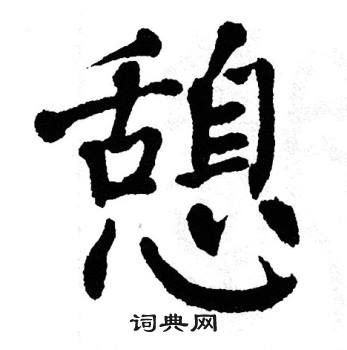 憩
词典网